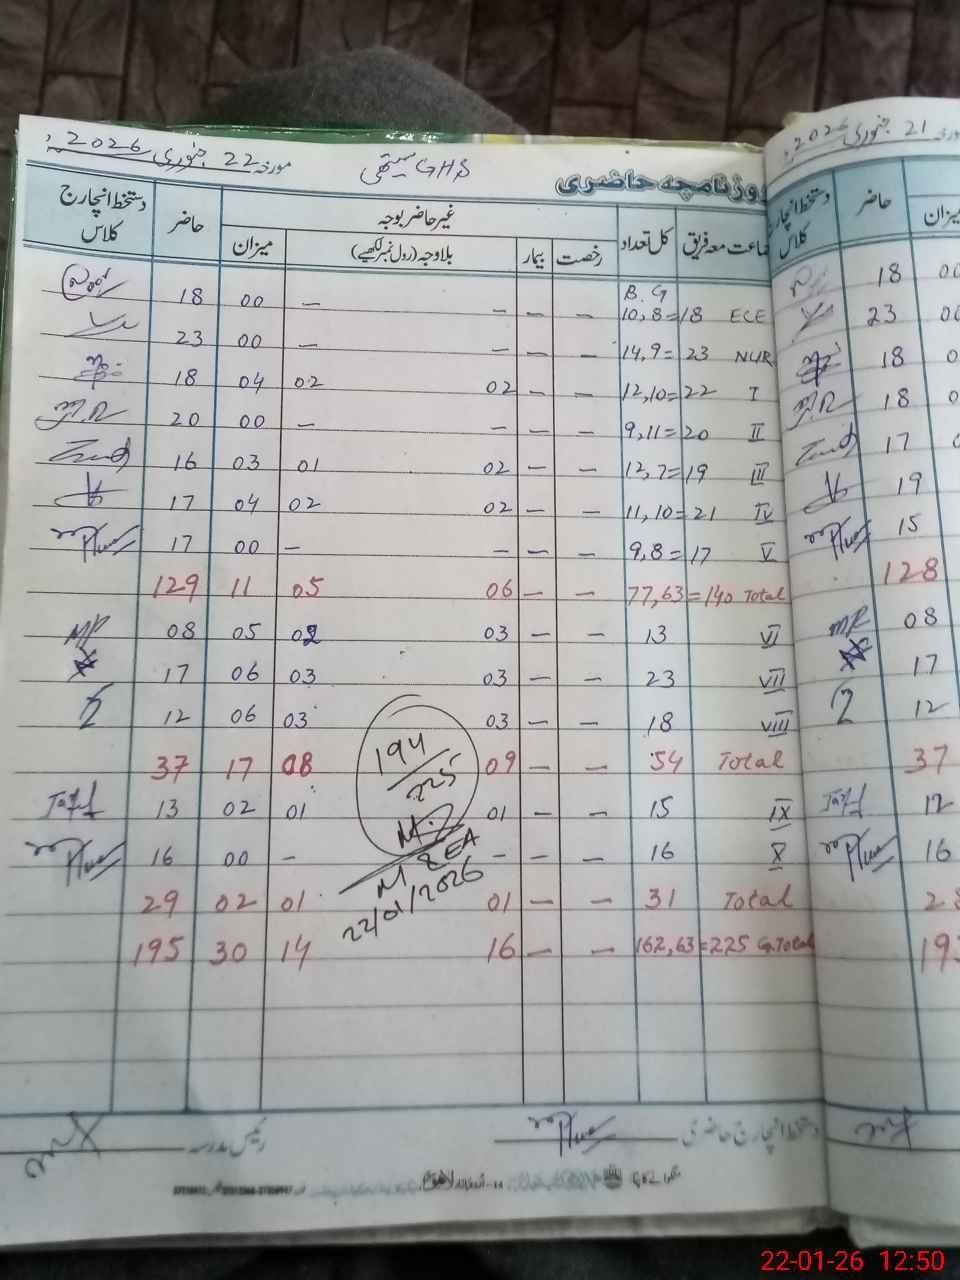 مورخہ 22 جنوری 2026ء
GHS
روزنامچہ حاضری
جماعت معہ فریق کل تعداد رخصت بیمار غیر حاضر بوجہ بلاوجہ (رول نمبر لکھیے) میزان حاضر دستخط انچارج کلاس
B. G
18 00 — — — — 10, 8 = 18 ECE
23 00 — — — — 14, 9 = 23 NUR
18 04 02 02 — — 12, 10 = 22 I
20 00 — — — — 9, 11 = 20 II
16 03 01 02 — — 12, 7 = 19 III
17 04 02 02 — — 11, 10 = 21 IV
17 00 — — — — 9, 8 = 17 V
129 11 05 06 — — 77, 63 = 140 Total
08 05 02 03 — — 13 VI
17 06 03 03 — — 23 VII
12 06 03 03 — — 18 VIII
37 17 08 09 — — 54 Total
13 02 01 01 — — 15 IX
16 00 — — — — 16 X
29 02 01 01 — — 31 Total
195 30 14 16 — — 162, 63 = 225 G.Total
194
225
M & EA
22/01/2026
دستخط انچارج حاضری
رئیس مدرسہ
مورخہ 21 جنوری 2026ء
میزان حاضر دستخط انچارج کلاس
18 00
23 00
18
18
17
19
15
128
08
17
12
37
12
16
22-01-26 12:50